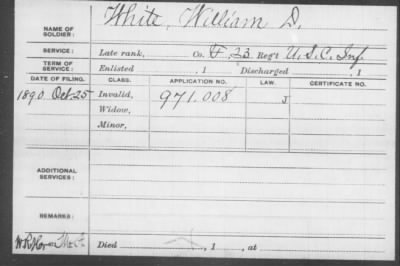 NAME OF SOLDIER: White, William D.
SERVICE: Late rank, Co. F, 23 Reg't U.S.C. Inf
TERM OF SERVICE: Enlisted , 1 Discharged , 1
DATE OF FILING. CLASS. APPLICATION NO. LAW. CERTIFICATE NO.
1890 Oct 25 Invalid, 971.008 J
Widow,
Minor,
ADDITIONAL SERVICES:
REMARKS:
Died , 1 , at